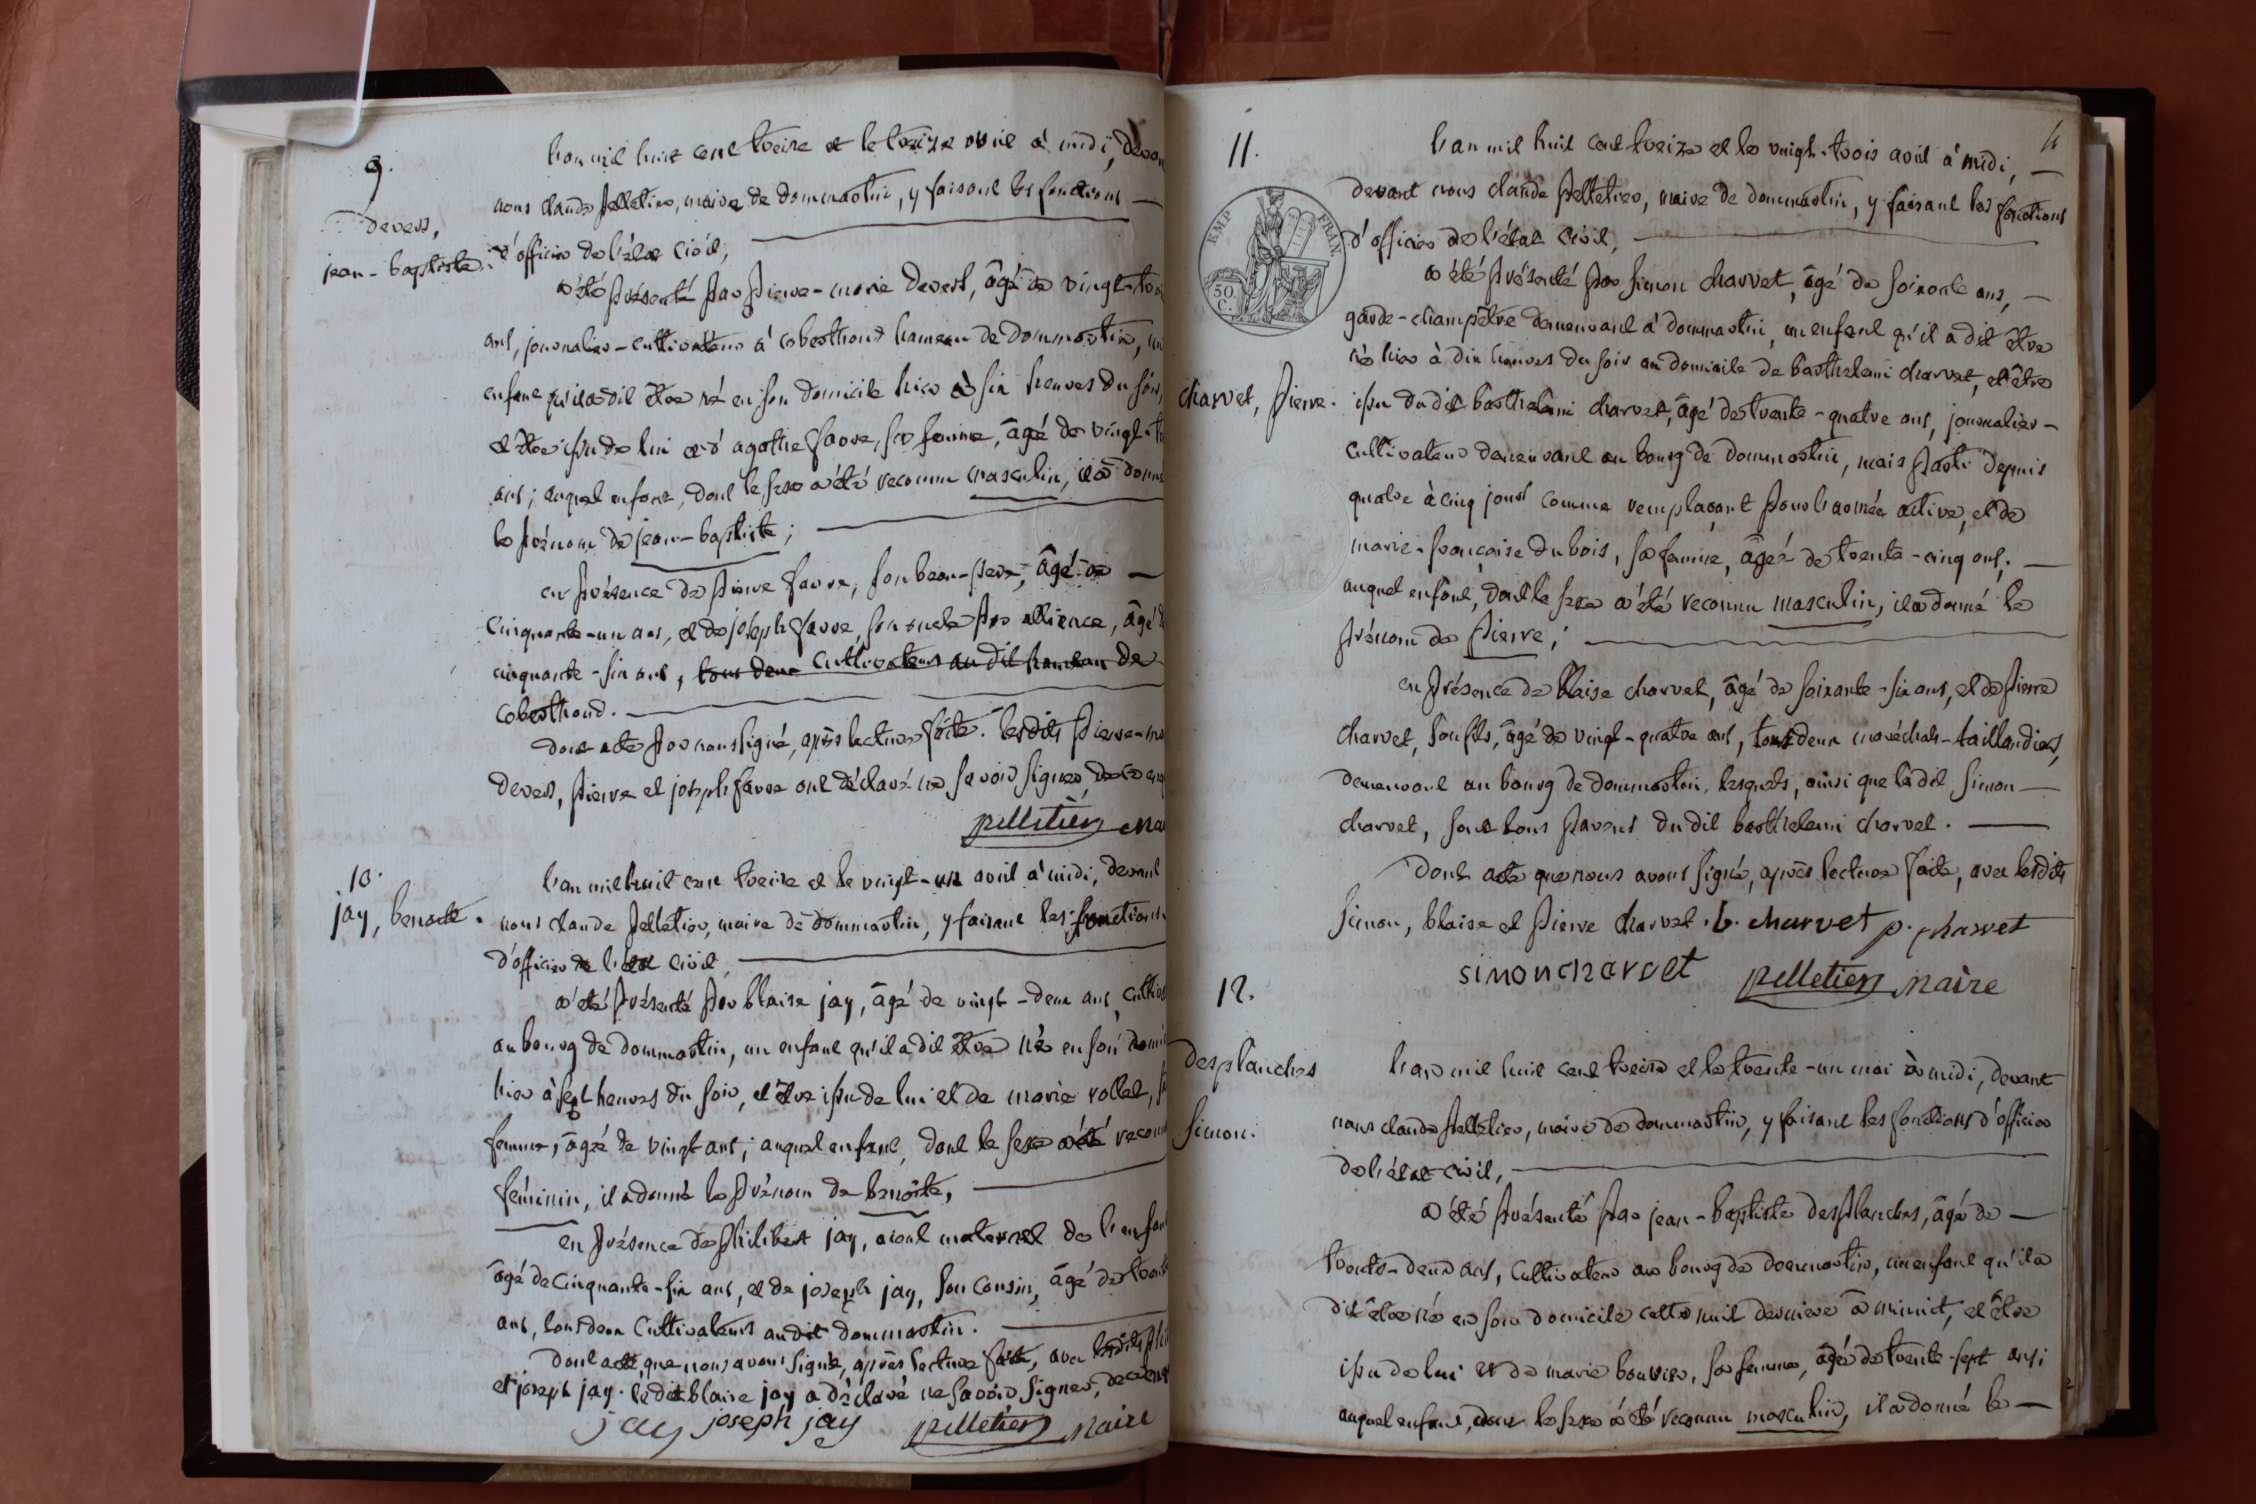 9.
devers,
jean-baptiste.
L'an mil huit cent treize et le treize avril à midi, devan
nous claude pelletier, maire de dommartin, y faisant les fonctions
d'officier de l'état civil,
a été présenté par pierre-marie devers, âgé de vingt-tr
ans, journalier-cultivateur à coberthoud hameau de dommartin, un
enfant qu'il a dit être né en son domicile hier à six heures du soir,
et être issu de lui et d'agathe favre, sa femme, âgé de vingt-
ans; auquel enfant, dont le sexe a été reconnu masculin, il a donné
le prénom de jean-baptiste;
en présence de pierre favre, son beau-père, âgé de
cinquante-un ans, et de joseph favre, son oncle par alliance, âgé d
cinquante-six ans, tous deux cultivateurs au dit hameau de
coberthoud.
dont acte par nous signé, après lecture faite. lesdits pierre-ma
devers, pierre et joseph favre ont déclaré ne savoir signer, de ce enq
pelletier mai
10.
jay, benoite.
L'an mil huit cent treize et le vingt-un avril à midi, devant
nous claude pelletier, maire de dommartin, y faisant les fonctions
d'officier de l'état civil,
a été présenté par blaise jay, âgé de vingt-deux ans, cultiva
au bourg de dommartin, un enfant qu'il a dit être né en son domi
hier à sept heures du soir, et être issu de lui et de marie rollet, s
femme, âgée de vingt ans; auquel enfant, dont le sexe a été reconn
féminin, il a donné le prénom de benoîte,
en présence de philibert jay, aïeul maternel de l'enfan
âgé de cinquante-six ans, et de joseph jay, son cousin, âgé de trente
ans, tous deux cultivateurs audit dommartin.
dont acte, que nous avons signé, après lecture faite, avec lesdits phi
et joseph jay. le dit blaise jay a déclaré ne savoir signer, de ce enq
jay joseph jay pelletier maire
4
11.
EMP FRAN
50 C.
charvet, pierre.
L'an mil huit cent treize et le vingt-trois avril à midi,
devant nous claude pelletier, maire de dommartin, y faisant les fonctions
d'officier de l'état civil,
a été présenté par simon charvet, âgé de soixante ans,
garde-champêtre demeurant à dommartin, un enfant qu'il a dit être
né hier à dix heures du soir au domicile de barthelemi charvet, et être
issu du dit barthelemi charvet, âgé de trente-quatre ans, journalier-
cultivateur demeurant au bourg de dommartin, mais parti depuis
quatre à cinq jours comme remplaçant pour l'armée active, et de
marie-françoise dubois, sa femme, âgée de trente-cinq ans;
auquel enfant, dont le sexe a été reconnu masculin, il a donné le
prénom de pierre;
en présence de blaise charvet, âgé de soixante-six ans, et de pierre
charvet, son fils, âgé de vingt-quatre ans, tous deux maréchals-taillandiers,
demeurant au bourg de dommartin, lesquels, ainsi que ledit simon
charvet, sont tous parens du dit barthelemi charvet.
dont acte que nous avons signé, après lecture faite, avec lesdits
simon, blaise et pierre charvet. b. charvet p. charvet
simon charvet pelletier maire
12.
desplanches
simon.
L'an mil huit cent treize et le trente-un mai à midi, devant
nous claude pelletier, maire de dommartin, y faisant les fonctions d'officier
de l'état civil,
a été présenté par jean-baptiste desplanches, âgé de
trente-deux ans, cultivateur au bourg de dommartin, un enfant qu'il a
dit être né en son domicile cette nuit derniere à minuit, et être
issu de lui et de marie bouvier, sa femme, âgée de trente-sept ans;
auquel enfant, dont le sexe a été reconnu masculin, il a donné le